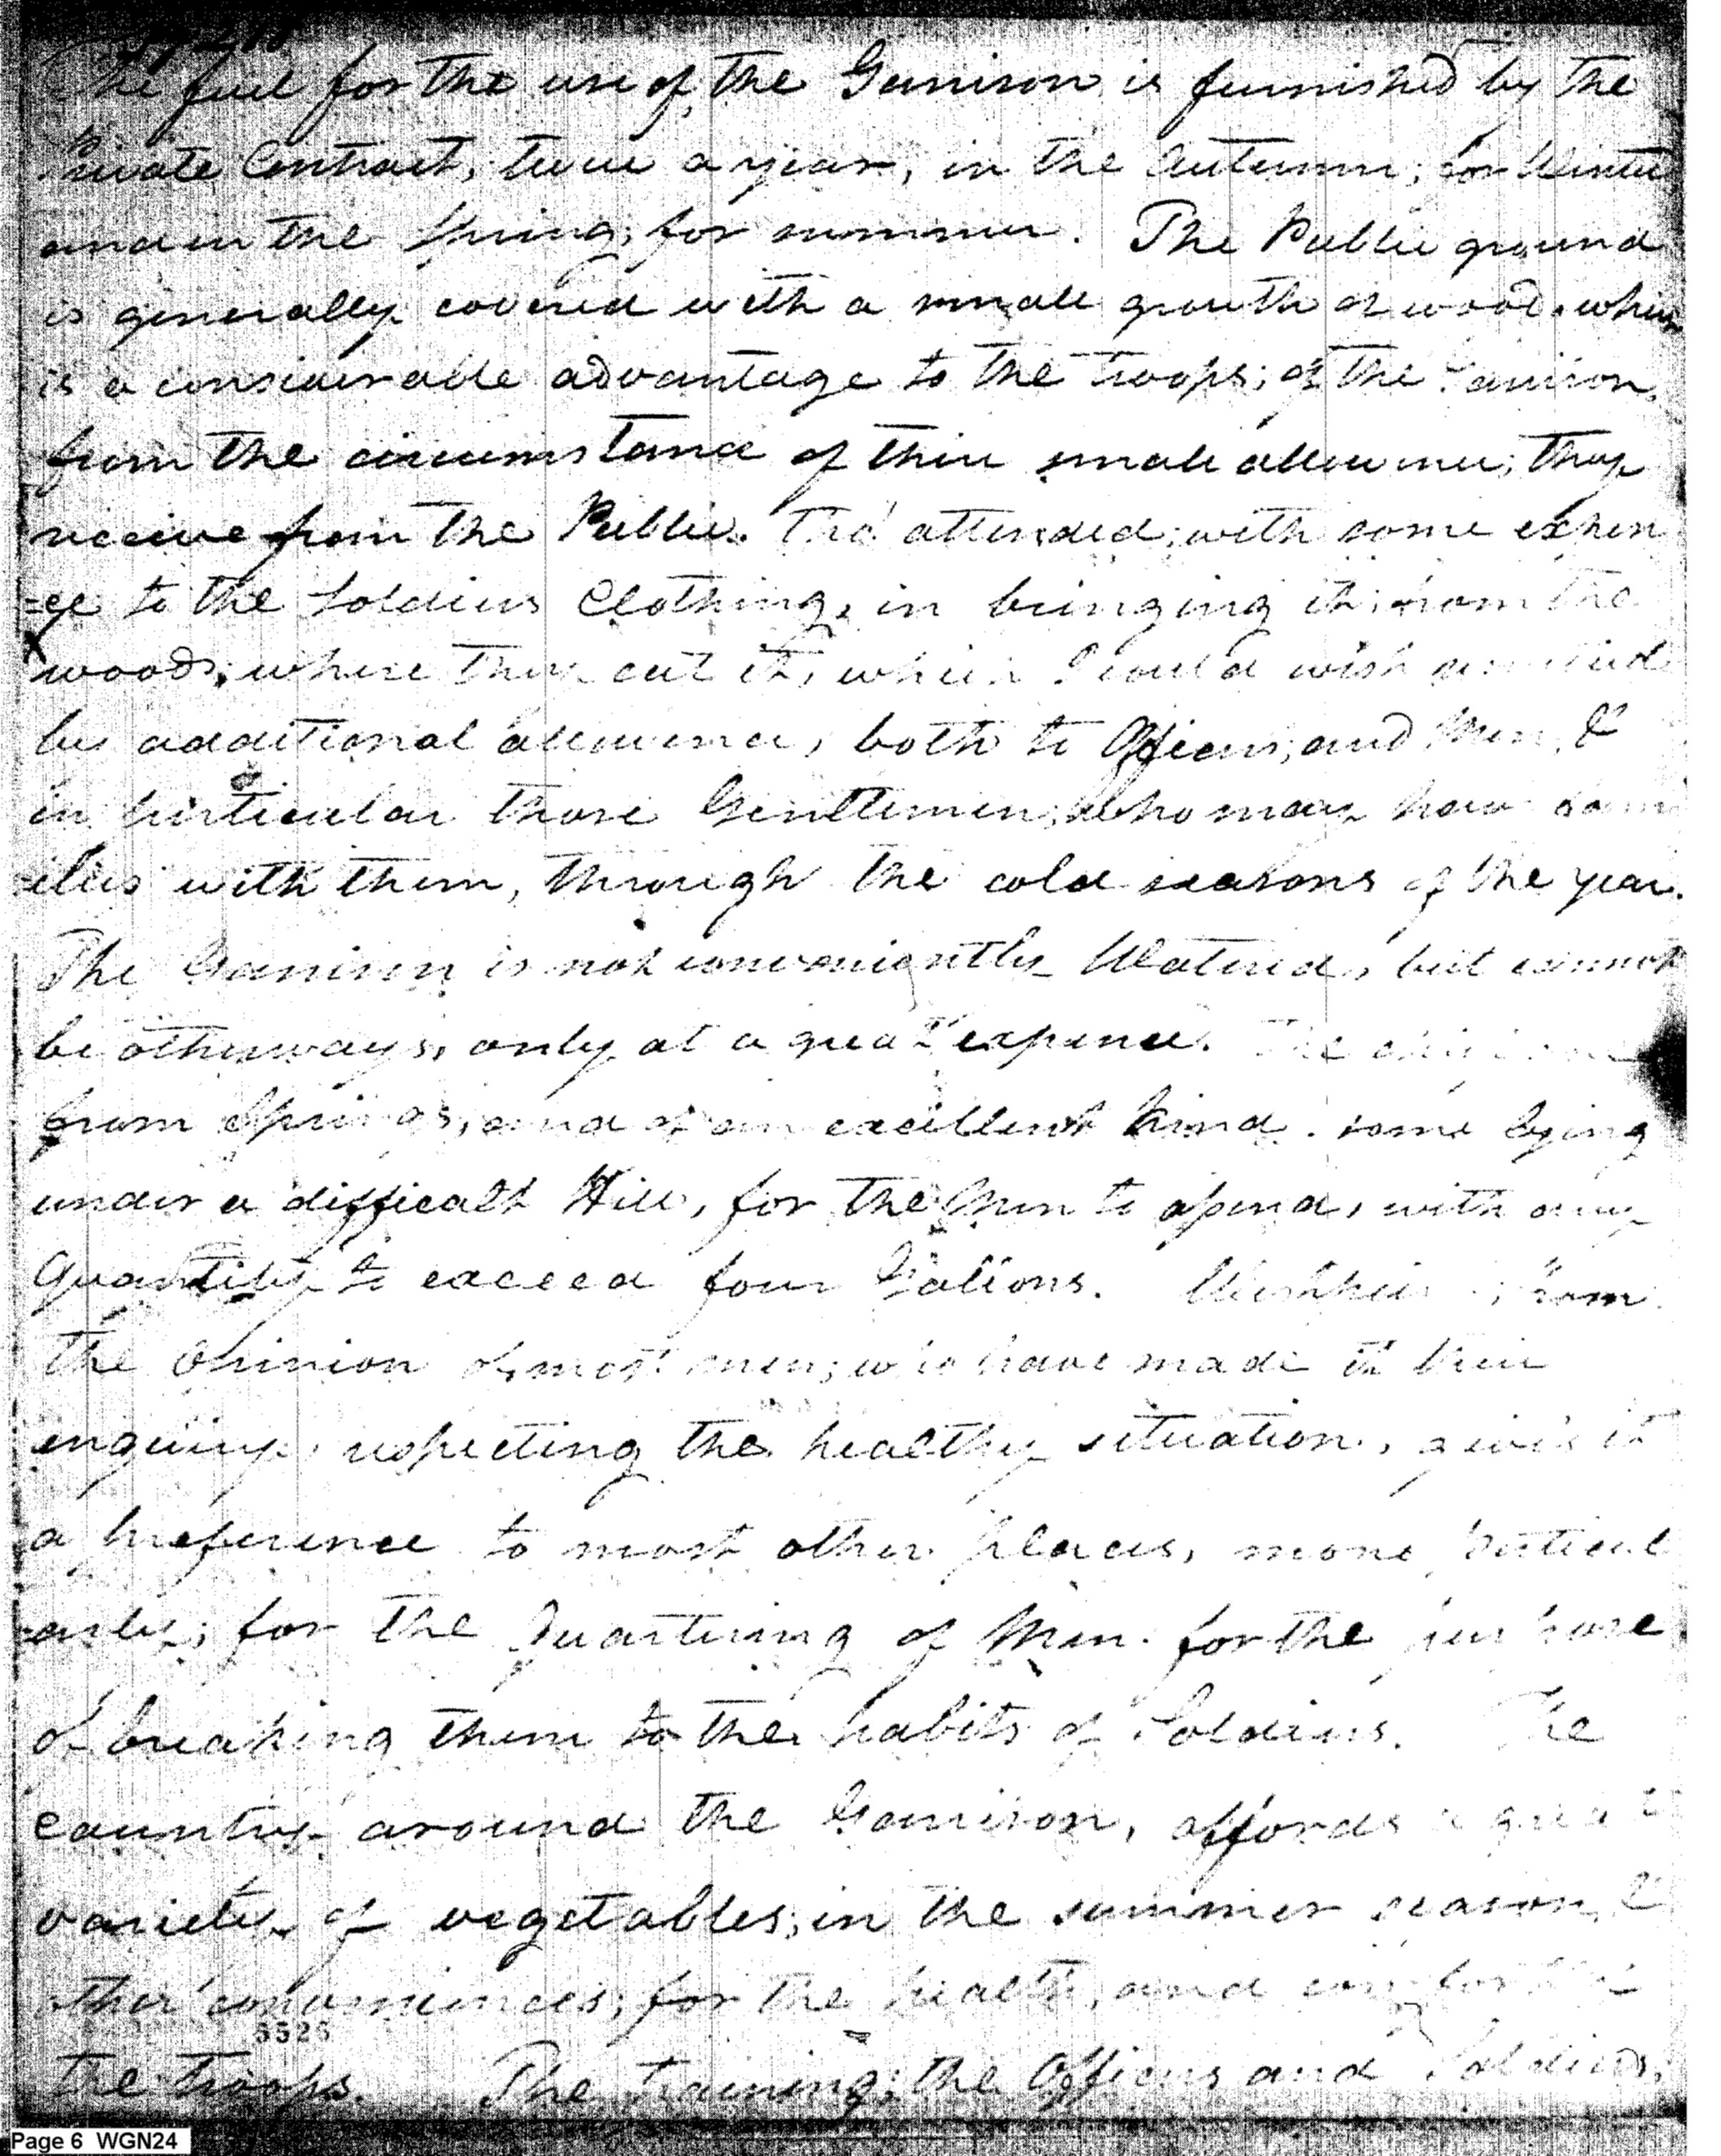 The fuel for the use of the Garrison is furnished by the
Private Contract, twice a year, in the Autumn, for Winter
and in the Spring, for summer. The Public ground
is generally covered with a small growth of wood, which
is a considerable advantage to the troops; of the Garrison,
from the circumstance of their small allowance, they
receive from the Public. Tho' attended, with some expen
=ce to the Soldiers Clothing, in bringing it from the
woods, where they cut it, which I could wish
by additional allowance, both to Officers, and Men, &
in particular those Gentlemen, who may have fami
=ilies with them, through the cold seasons of the year.
The Garrison is not conveniently Watered, but cannot
be otherways, only at a great expence. The
from Springs, and of an excellent kind. some lying
under a difficalt Hill, for the Men to asend, with any
Quantity to exceed four Gallons. from
the Opinion of most men, who have made it their
enquiry, respecting the healthy situation, gives it
a preference to most other places, more particul
=arly, for the Quartering of Men. for the purpose
of breaking them to the habits of Soldiers. The
country around the Garrison, affords a great
variety of vegetables, in the summer season, &
other conveniences, for the health, and comfort of
5525
the troops. The training, the Officers and Soldiers,
Page 6 WGN24